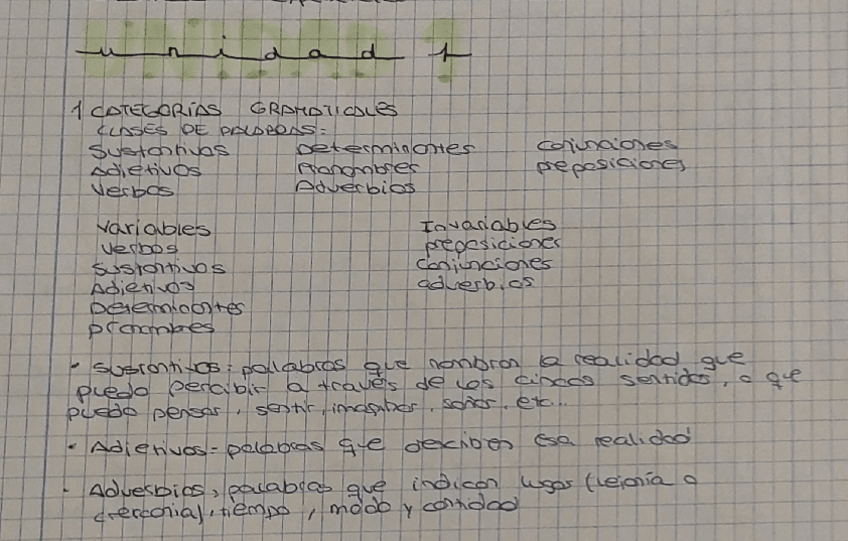 unidad 1
1 CATEGORÍAS GRAMATICALES
CLASES DE PALABRAS:
Sustantivos Determinantes conjunciones
Adjetivos Pronombres preposiciones
Verbos Adverbios
Variables Invariables
Verbos preposiciones
Sustantivos conjunciones
Adjetivos adverbios
Determinantes
pronombres
• Sustantivos: palabras que nombran la realidad que
puedo percibir a través de los cincos sentidos, o que
puedo pensar, sentir, imaginar, soñar, etc...
• Adjetivos = palabras que describen esa realidad
• Adverbios, palabras que indican lugar (lejanía o
cercanía), tiempo, modo y cantidad